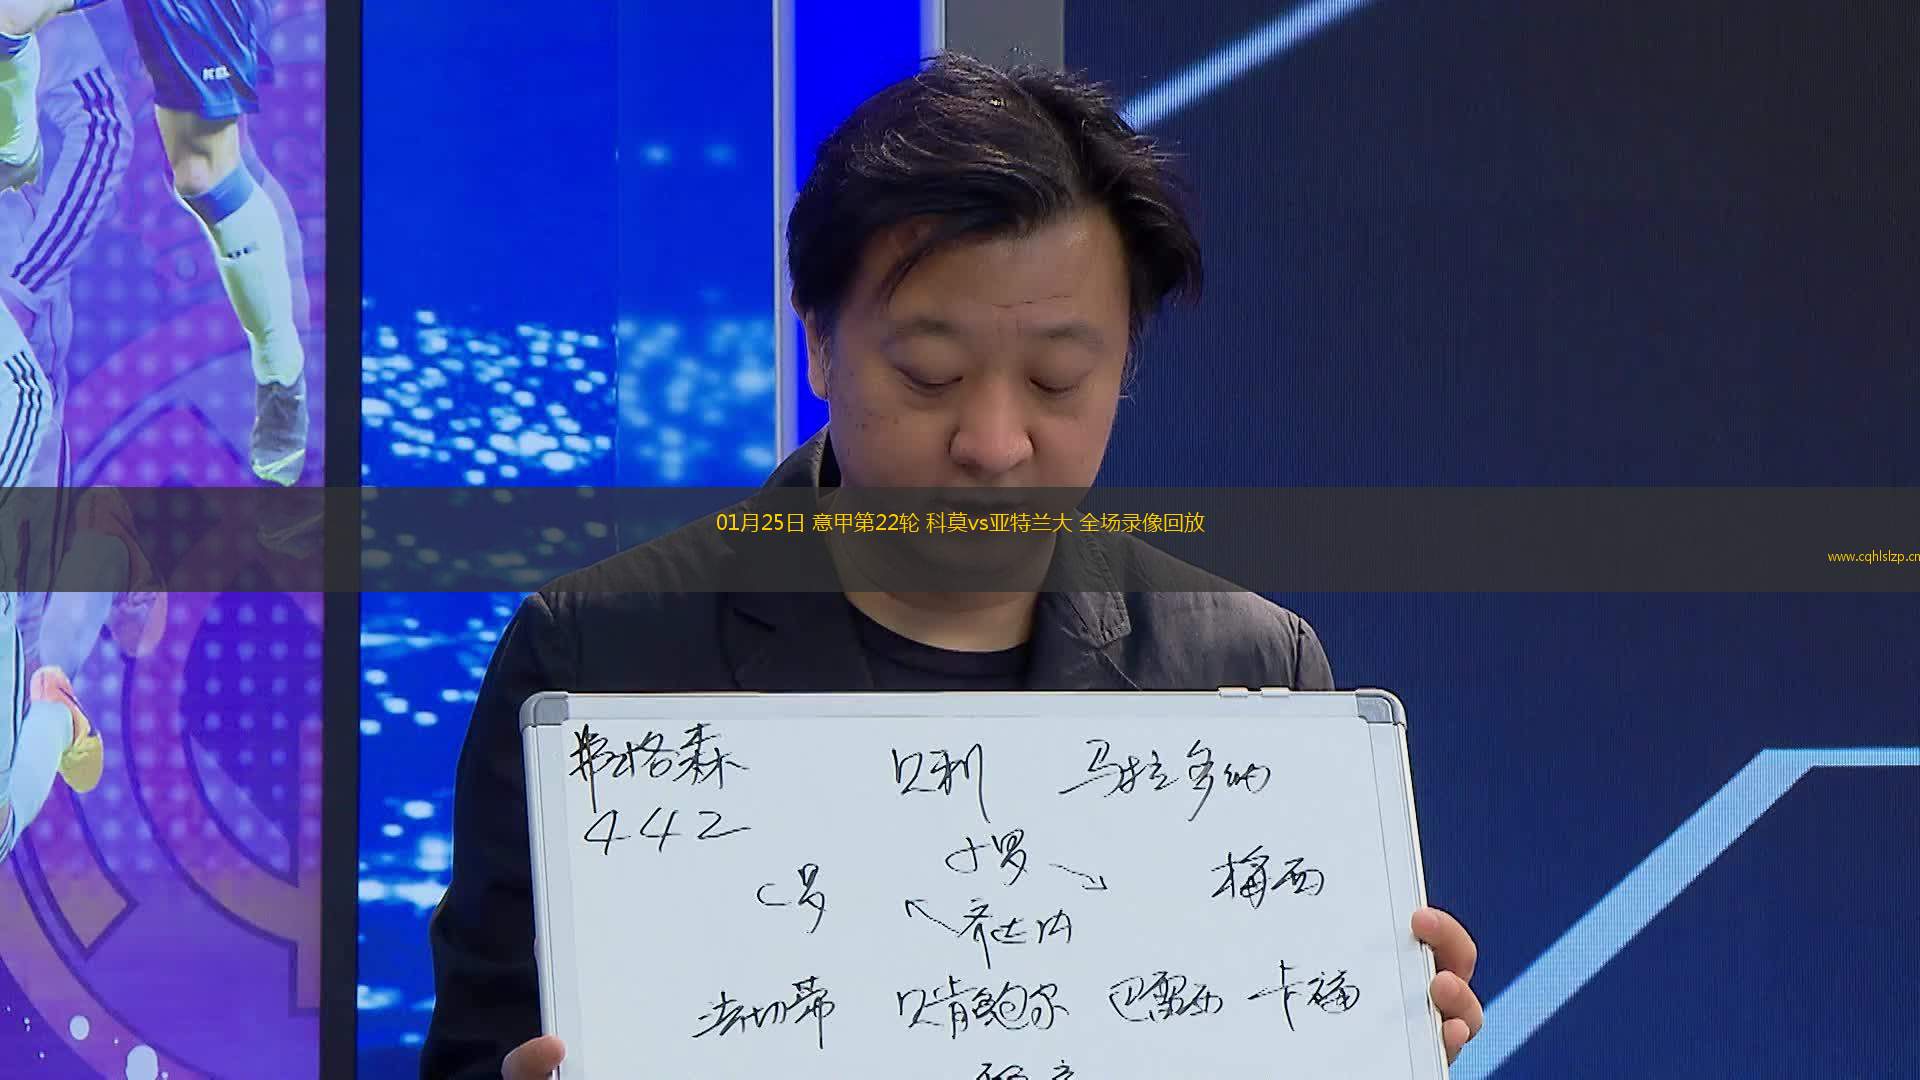 01月25日 意甲第22轮 科莫vs亚特兰大 全场录像回放
www.cqhlslzp.cn
弗格森 贝利 马拉多纳
442
小罗
C罗 梅西
齐达内
法切蒂 贝肯鲍尔 巴雷西 卡福